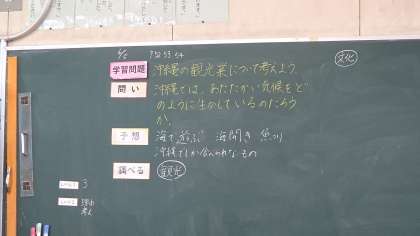 学習問題 沖縄の観光業について考えよう。
文化
問い 沖縄では、あたたかい気候をど
のように生かしているのだろう
か。
予想 海で遊ぶ 海開き 魚つり
沖縄でしか食べられないもの
調べる 観光
3
考え